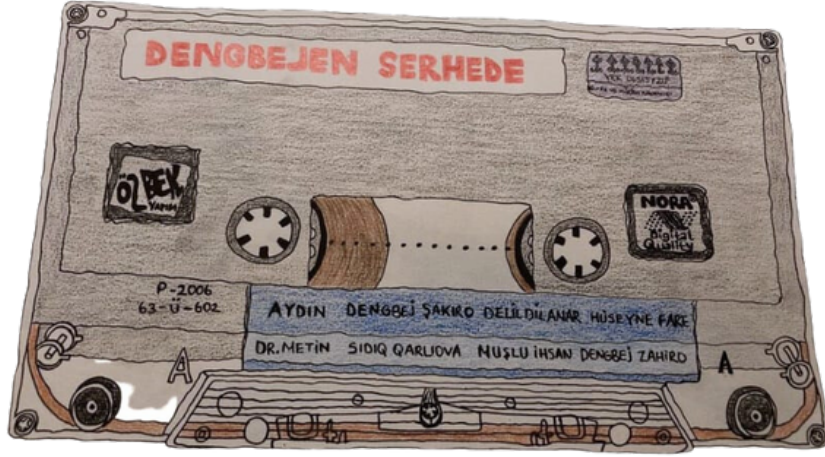 DENGBEJEN SERHEDE
ÖZBEK
YAPIM
NORA
Digital
Quality
P-2006
63-Ü-602
AYDIN DENGBEJ ŞAKIRO DELİLDİLANAR HÜSEYNE FARE
DR.METİN SIDIQ QARLIOVA MUŞLU İHSAN DENGBEJ ZAHİRO
A
A